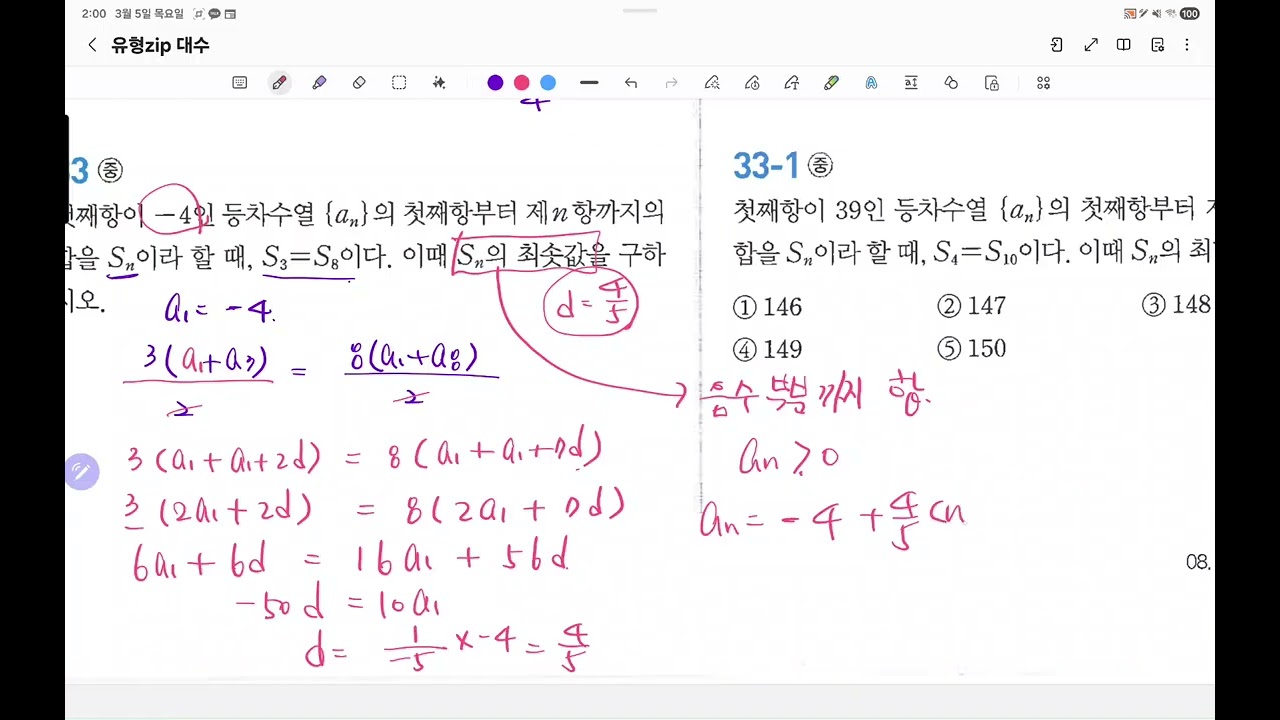 2:00 3월 5일 목요일
100
유형zip 대수
3 중
첫째항이 -4인 등차수열 {aₙ}의 첫째항부터 제n항까지의
합을 Sₙ이라 할 때, S₃=S₈이다. 이때 Sₙ의 최솟값을 구하
시오.
a₁ = -4.
d = 4/5
3(a₁+a₃)/2 = 8(a₁+a₈)/2
3(a₁+a₁+2d) = 8(a₁+a₁+7d)
3(2a₁+2d) = 8(2a₁+7d)
6a₁+6d = 16a₁+56d
-50d = 10a₁
d = 1/-5 × -4 = 4/5
33-1 중
첫째항이 39인 등차수열 {aₙ}의 첫째항부터
합을 Sₙ이라 할 때, S₄=S₁₀이다. 이때 Sₙ의 최
① 146 ② 147 ③ 148
④ 149 ⑤ 150
음수 부분까지 합.
aₙ ≥ 0
aₙ = -4 + 4/5 (n
08.